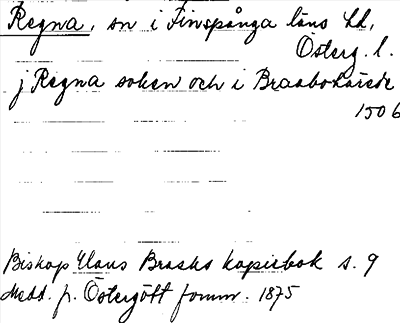 Regna, sn i Finspånga läns hd,
Österg. l.
j Regna soken och i Braabohärede
1506
Biskop Hans Brasks kopiebok s. 9
Medd. fr. Östergötl fornm. 1875